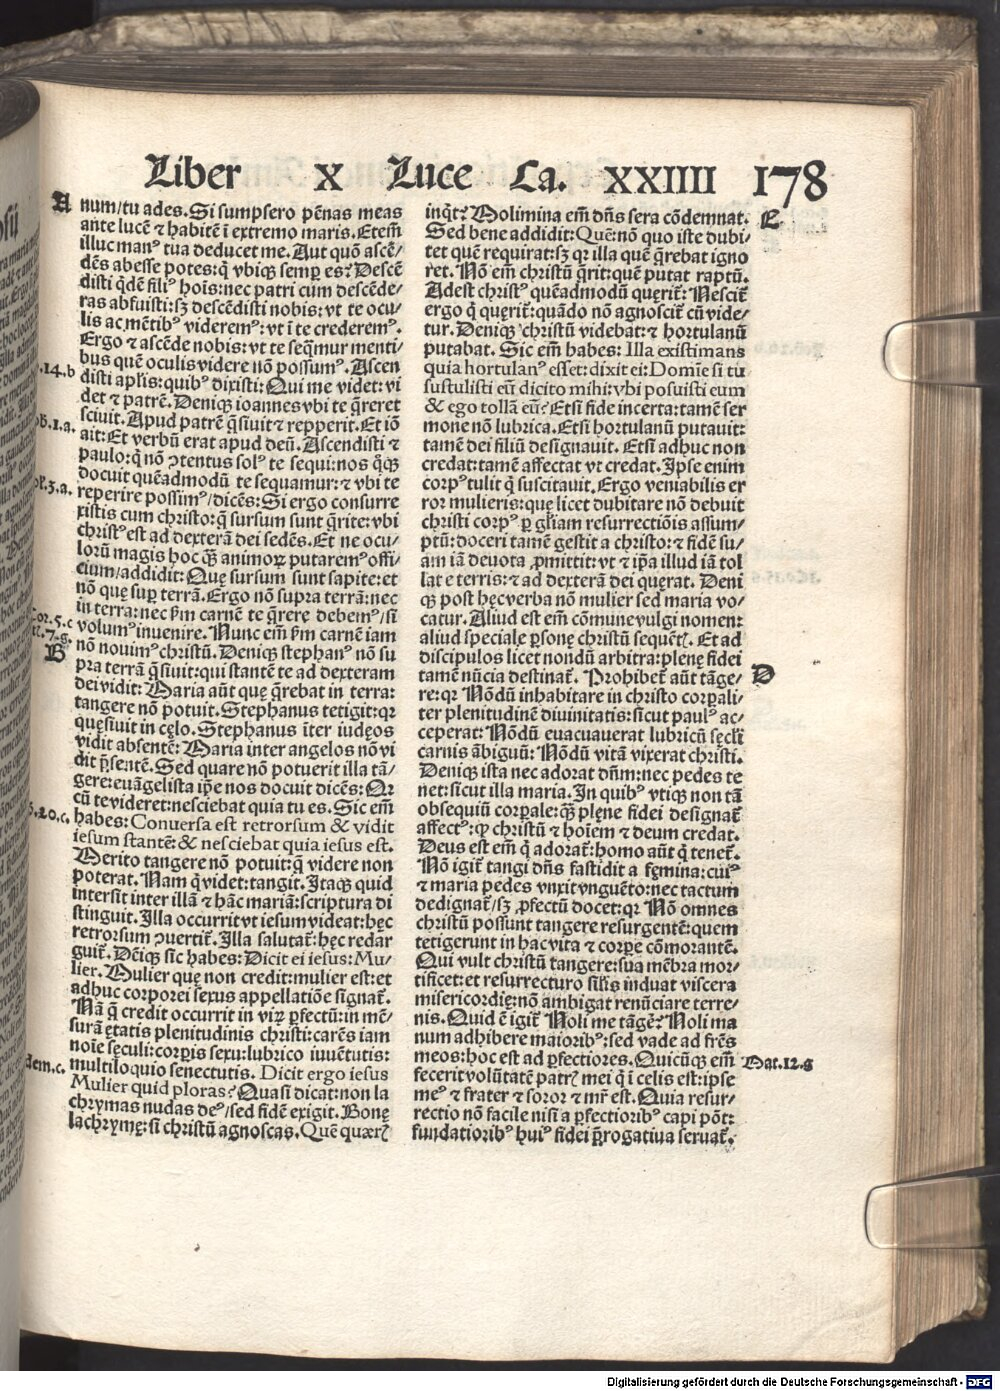 Liber X Luce Ca. XXIIII 178
A
num/tu ades. Si sumpsero pēnas meas
ante lucē ⁊ habitē ī extremo maris. Etem̄
illuc manꝰ tua deducet me. Aut quō ascē/
dēs abesse potes: q̄ vbiqꝫ semꝑ es? Descē
disti qdē fili hoīs: nec patri cum descēde/
ras abfuisti: sꝫ descēdisti nobis: vt te ocu/
lis ac mētibꝰ videremꝰ: vt ī te crederemꝰ.
Ergo ⁊ ascēde nobis: vt te seq̄mur menti/
bus quē oculis videre nō possumꝰ. Ascen
.14.b
disti apl̄is: quibꝰ dixisti: Qui me videt: vi
det ⁊ patrē. Deniqꝫ ioannes vbi te q̄reret
sciuit. Apud patrē q̄siuit ⁊ repperit. Et iō
.1.a.
ait: Et verbū erat apud deū. Ascendisti ⁊
paulo: q̄ nō ↄtentus solꝰ te sequi: nos q̄qꝫ
docuit quēadmodū te sequamur: ⁊ vbi te
.3.a.
reperire possimꝰ/dicēs: Si ergo consurre
xistis cum christo: q̄ sursum sunt q̄rite: vbi
christꝰ est ad dexterā dei sedēs. Et ne ocu/
lorū magis hoc q̄ꝫ animoꝝ putarem offi/
cium/addidit: Quę sursum sunt sapite: et
nō que suꝑ terrā. Ergo nō supra terrā: nec
in terra: nec ẜm carnē te q̄rere debemꝰ/si
.5.c
.7.g.
volumꝰ inuenire. Nunc em̄ ẜm carnē iam
B
nō nouimꝰ christū. Deniqꝫ stephanꝰ nō su
pra terrā q̄siuit: qui stantē te ad dexteram
dei vidit: Maria aūt quę q̄rebat in terra:
tangere nō potuit. Stephanus tetigit: qꝛ
quęsiuit in cęlo. Stephanus īter iudęos
vidit absentē: Maria inter angelos nō vi
dit p̄sentē. Sed quare nō potuerit illa tā/
gere: euāgelista ip̄e nos docuit dicēs: Qꝛ
cū te videret: nesciebat quia tu es. Sic em̄
.20.c.
habes: Conuersa est retrorsum & vidit
iesum stantē: & nesciebat quia iesus est.
Merito tangere nō potuit: q̄ videre non
poterat. Nam q̄ videt: tangit. Itaqꝫ quid
intersit inter illā ⁊ hāc mariā: scriptura di
stinguit. Illa occurrit vt iesum videat: hęc
retrorsum ↄuertit̄. Illa salutat̄: hęc redar
guit̄. Dēiqꝫ sic habes: Dicit ei iesus: Mu/
lier. Mulier quę non credit: mulier est: et
adhuc corporei sexus appellatiōe signat̄.
Nā q̄ credit occurrit in viꝝ ꝑfectū: in mē/
surā ętatis plenitudinis christi: carēs iam
noīe sęculi: corꝑis sexu: lubrico iuuētutis:
.c.
multiloquio senectutis. Dicit ergo iesus
Mulier quid ploras? Quasi dicat: non la
chrymas nudas deꝰ/sed fidē exigit. Bonę
lachrymę: si christū agnoscas. Quē quæris?
inq̄t? Molimina em̄ dn̄s sera cōdemnat.
E
Sed bene addidit: Quē: nō quo iste dubi/
tet quē requirat: sꝫ qꝛ illa quē q̄rebat igno
ret. Nō em̄ christū q̄rit: quē putat raptū.
Adest christꝰ quēadmodū quęrit̄: Nescit
ergo q̄ quęrit̄: quādo nō agnoscit cū vide/
tur. Deniqꝫ christū videbat: ⁊ hortulanū
putabat. Sic em̄ habes: Illa existimans
quia hortulanꝰ esset: dixit ei: Domīe si tu
sustulisti eum dicito mihi: vbi posuisti eum
& ego tollā eū? Etsi fide incerta: tamē ser
mone nō lubrica. Etsi hortulanū putauit:
tamē dei filiū designauit. Etsi adhuc non
credat: tamē affectat vt credat. Ipse enim
corpꝰ tulit q̄ suscitauit. Ergo veniabilis er
ror mulieris: que licet dubitare nō debuit
christi corpꝰ ꝑ gl̄iam resurrectiōis assum/
ptū: doceri tamē gestit a christo: ⁊ fidē su/
am iā deuota ꝓmittit: vt ⁊ ip̄a illud iā tol
lat e terris: ⁊ ad dexterā dei quęrat. Deni
qꝫ post hęc verba nō mulier sed maria vo/
catur. Aliud est em̄ cōmune vulgi nomen:
aliud speciale ꝑsonę christū sequētꝭ. Et ad
discipulos licet nondū arbitra: plenę fidei
tamē nūcia destinat̄. Prohibet̄ aūt tāge/
D
re: qꝛ Nōdū inhabitare in christo corꝑali/
ter plenitudinē diuinitatis: sicut paulꝰ ac/
ceperat: Nōdū euacuauerat lubricū sęcl̄i
carnis ābiguū: Nōdū vitā vixerat christi.
Deniqꝫ ista nec adorat dn̄m: nec pedes te
net: sicut illa maria. In quibꝰ vtiqꝫ non tā
obsequiū corꝑale: q̄ꝫ plęne fidei designat̄
affectꝰ: ꝙ christū ⁊ hoīem ⁊ deum credat.
Deus est em̄ q̄ adorat̄: homo aūt q̄ tenet̄.
Nō igit̄ tangi dn̄s fastidit a fęmina: cuiꝰ
⁊ maria pedes vnxit vnguēto: nec tactum
dedignat̄/sꝫ ꝓfectū docet: qꝛ Nō omnes
christū possunt tangere resurgentē: quem
tetigerunt in hac vita ⁊ corꝑe cōmorantē.
Qui vult christū tangere: sua mēbra mor/
tificet: et resurrecturo sil̄is induat viscera
misericordię: nō ambigat renūciare terre/
nis. Quid ē igit̄ Noli me tāgē? Noli ma
num adhibere maioribꝰ: sed vade ad frēs
meos: hoc est ad ꝑfectiores. Quicūqꝫ em̄
Mat.12.g
fecerit volūtatē patrꝭ mei q̄ ī celis est: ipse
meꝰ ⁊ frater ⁊ soror ⁊ mr̄ est. Quia resur/
rectio nō facile nisi a ꝑfectioribꝰ capi pōt:
fundatioribꝰ huiꝰ fidei p̄rogatiua seruat̄.
Digitalisierung gefördert durch die Deutsche Forschungsgemeinschaft - DFG